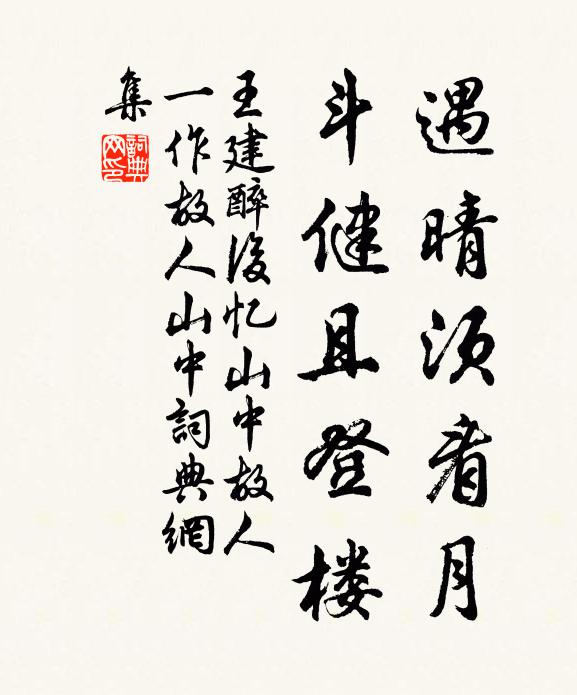 遇晴须看月
斗健且登楼
王建醉後忆山中故人
一作故人山中詞典網
集
詞典
网印